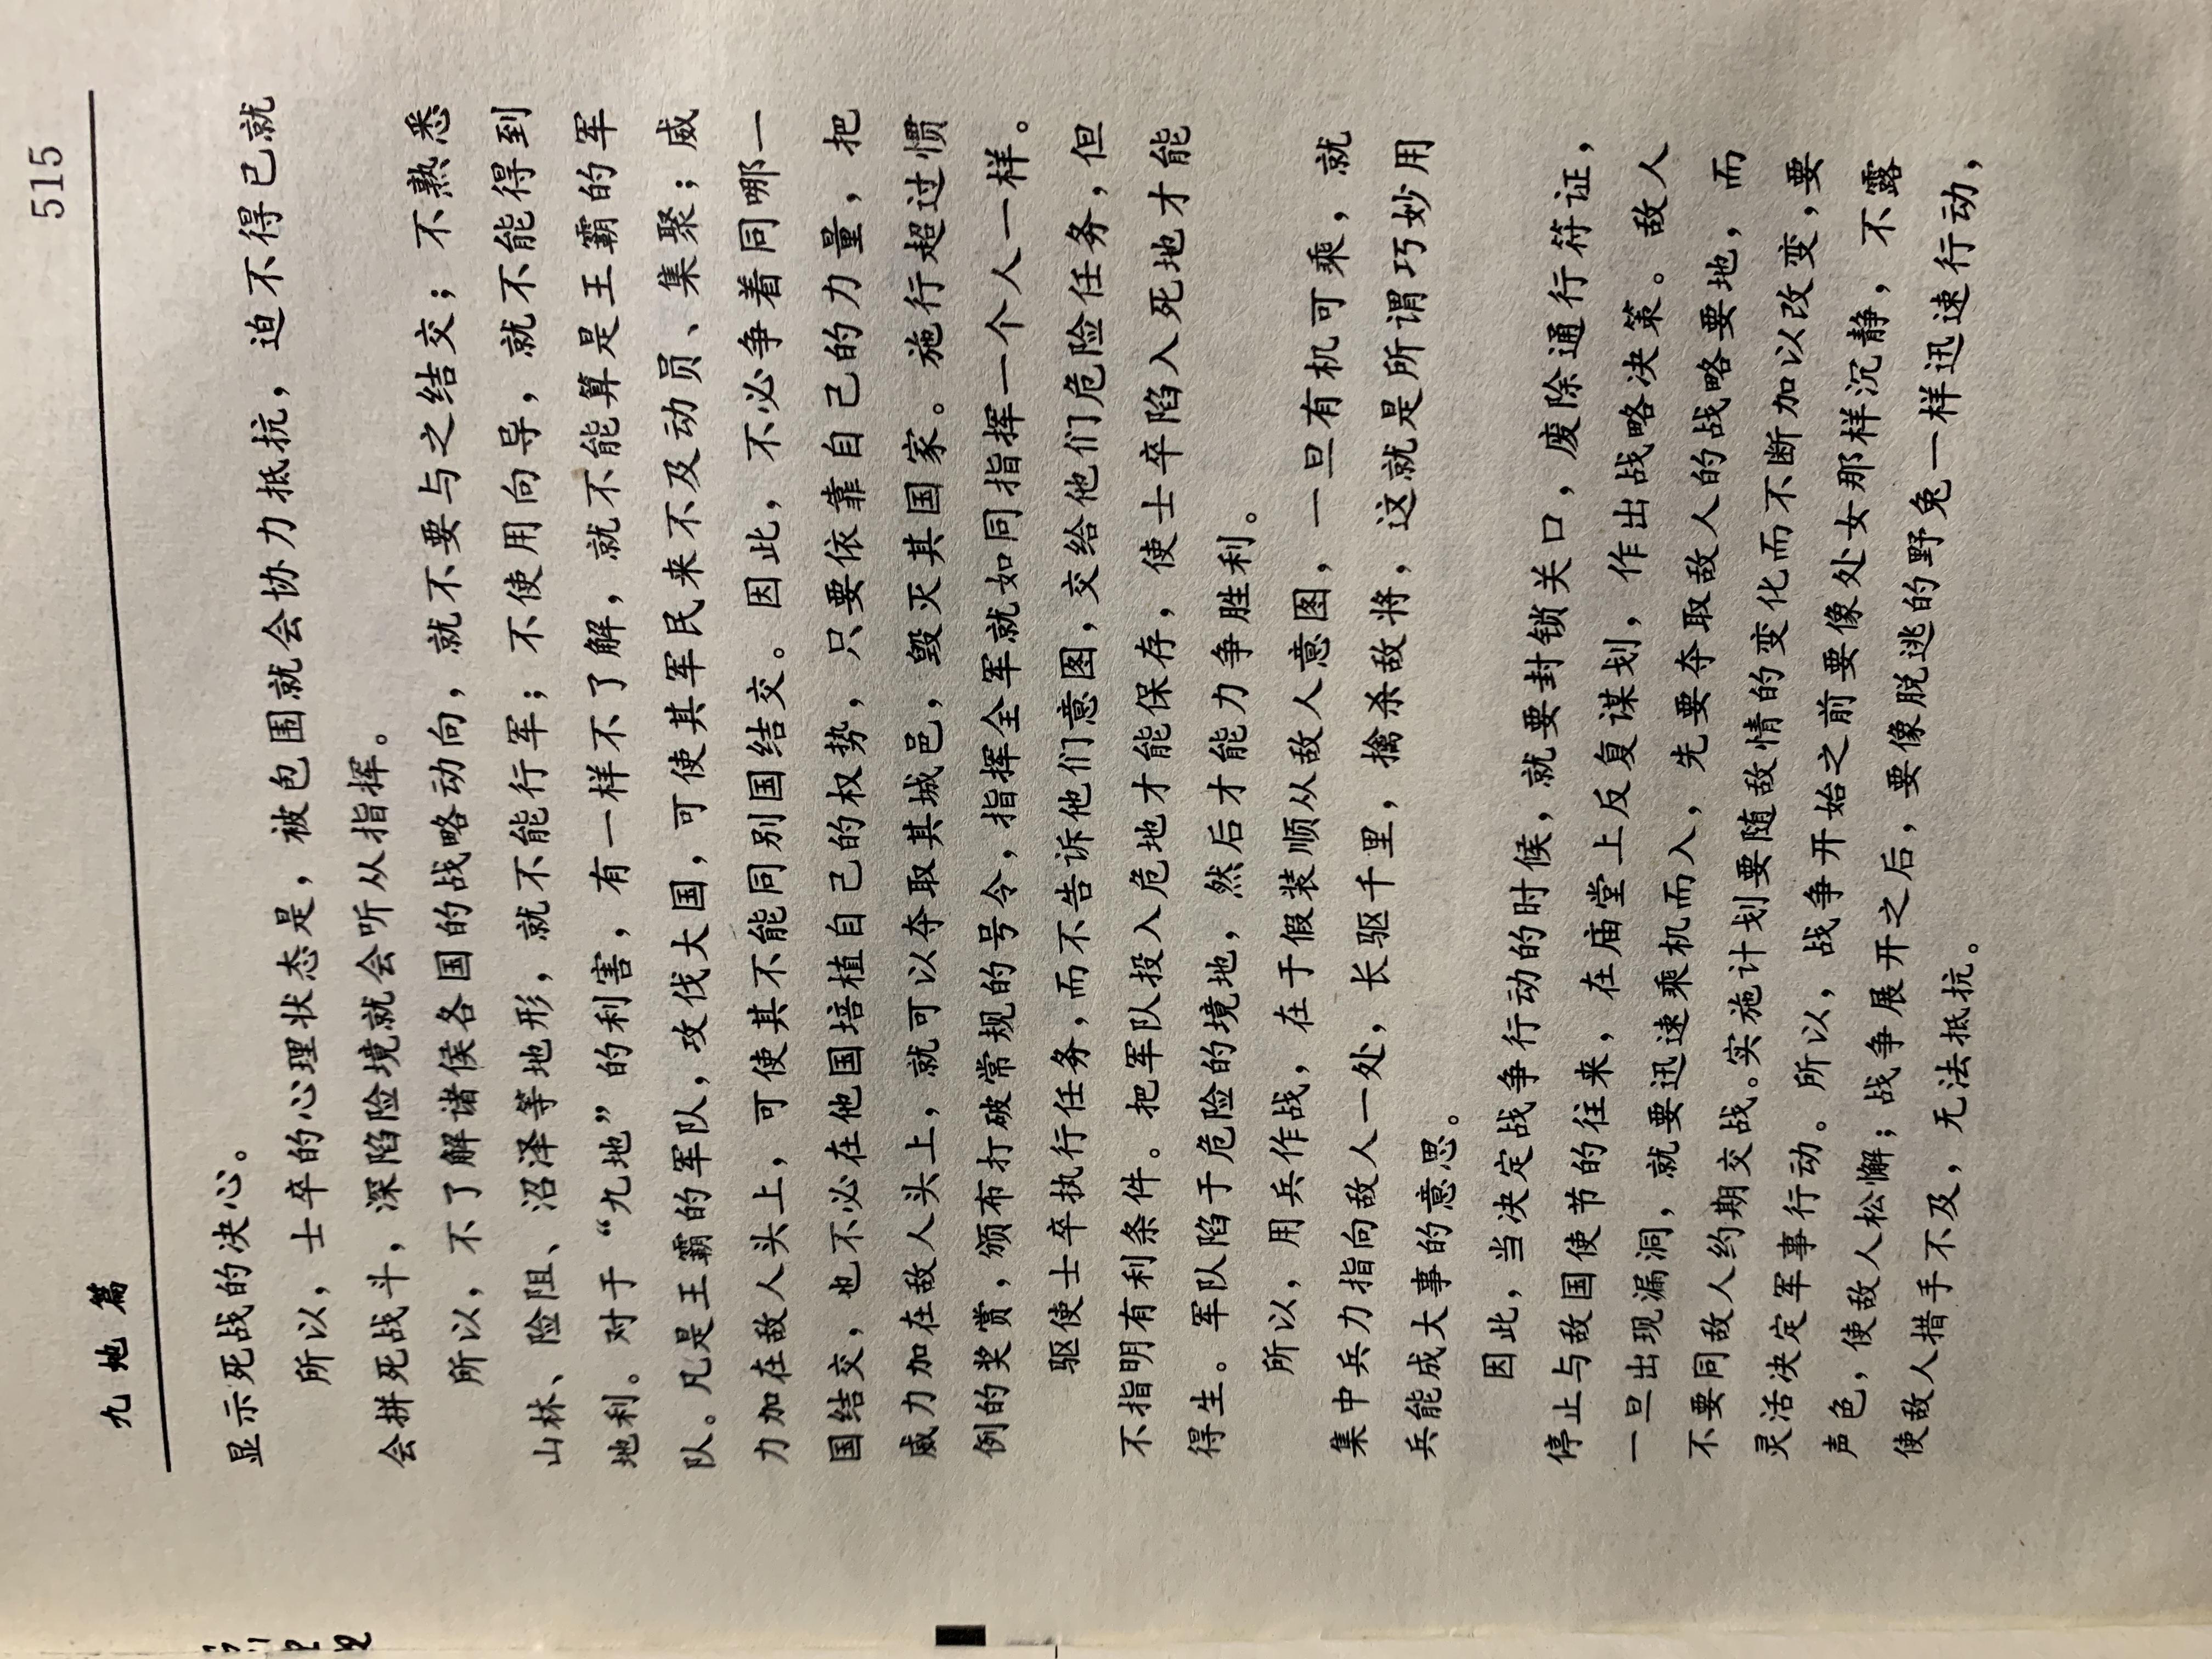 九地篇 515
显示死战的决心。
所以，士卒的心理状态是，被包围就会协力抵抗，迫不得已就
会拼死战斗，深陷险境就会听从指挥。
所以，不了解诸侯各国的战略动向，就不要与之结交；不熟悉
山林、险阻、沼泽等地形，就不能行军；不使用向导，就不能得到
地利。对于“九地”的利害，有一样不了解，就不能算是王霸的军
队。凡是王霸的军队，攻伐大国，可使其军民来不及动员、集聚；威
力加在敌人头上，可使其不能同别国结交。因此，不必争着同哪一
国结交，也不必在他国培植自己的权势，只要依靠自己的力量，把
威力加在敌人头上，就可以夺取其城邑，毁灭其国家。施行超过惯
例的奖赏，颁布打破常规的号令，指挥全军就如同指挥一个人一样。
驱使士卒执行任务，而不告诉他们意图，交给他们危险任务，但
不指明有利条件。把军队投入危地才能保存，使士卒陷入死地才能
得生。军队陷于危险的境地，然后才能力争胜利。
所以，用兵作战，在于假装顺从敌人意图，一旦有机可乘，就
集中兵力指向敌人一处，长驱千里，擒杀敌将，这就是所谓巧妙用
兵能成大事的意思。
因此，当决定战争行动的时候，就要封锁关口，废除通行符证，
停止与敌国使节的往来，在庙堂上反复谋划，作出战略决策。敌人
一旦出现漏洞，就要迅速乘机而入，先要夺取敌人的战略要地，而
不要同敌人约期交战。实施计划要随敌情的变化而不断加以改变，要
灵活决定军事行动。所以，战争开始之前要像处女那样沉静，不露
声色，使敌人松懈；战争展开之后，要像脱逃的野兔一样迅速行动，
使敌人措手不及，无法抵抗。